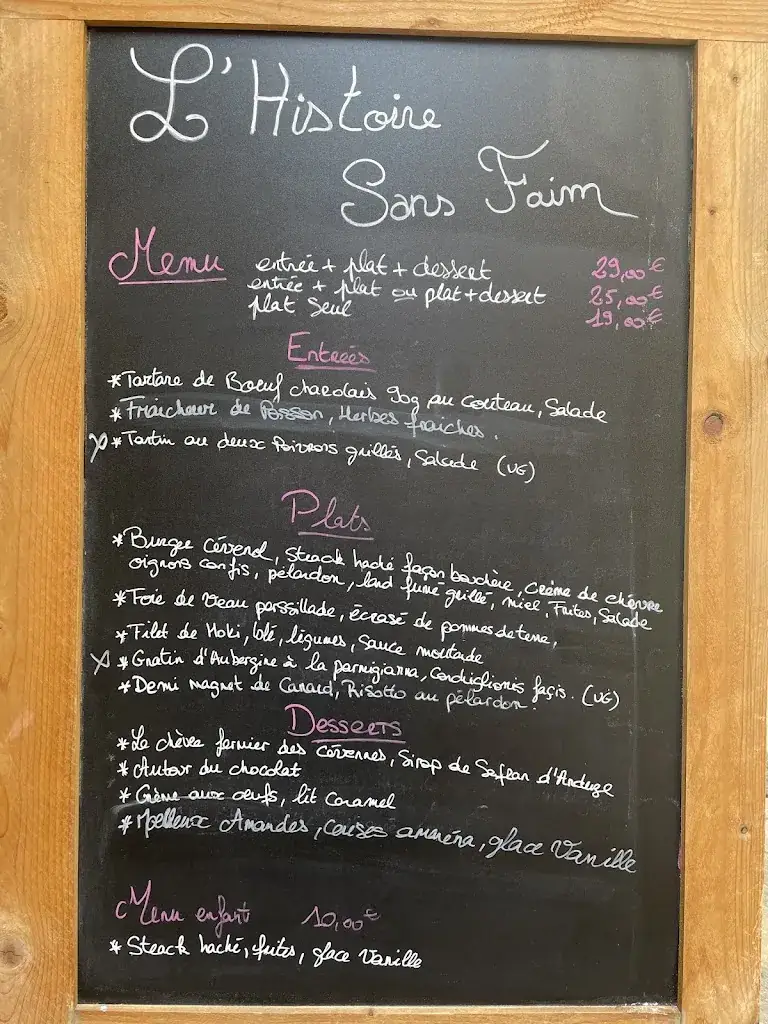 L'Histoire
Sans Faim
Menu entrée + plat + dessert 29,00€
entrée + plat ou plat + dessert 25,00€
plat seul 19,00€
Entrées
* Tartare de Bœuf charolais 90g au couteau, Salade
* Fraicheur de Poisson, Herbes fraiches.
* Tartin au deux Poivrons grillés, Salade (VG)
Plats
* Burger Cévenol, Steack haché façon bouchère, Crème de chèvre
oignons confis, pélardon, lard fumé grillé, miel, Frites, Salade
* Foie de Veau perssillade, écrasé de pommes de terre,
* Filet de Hoki, blé, légumes, sauce moutarde
* Gratin d'Aubergine à la parmigianna, Conchiglionis façis. (VG)
* Demi magret de Canard, Risotto au pélardon.
Desserts
* Le chèvre fermier des Cévennes, Sirop de Safran d'Anduze
* Autour du chocolat
* Crème aux œufs, lit Caramel
* Moelleux Amandes, Cerises amaréna, glace Vanille
Menu enfant 10,00€
* Steack haché, frites, glace Vanille